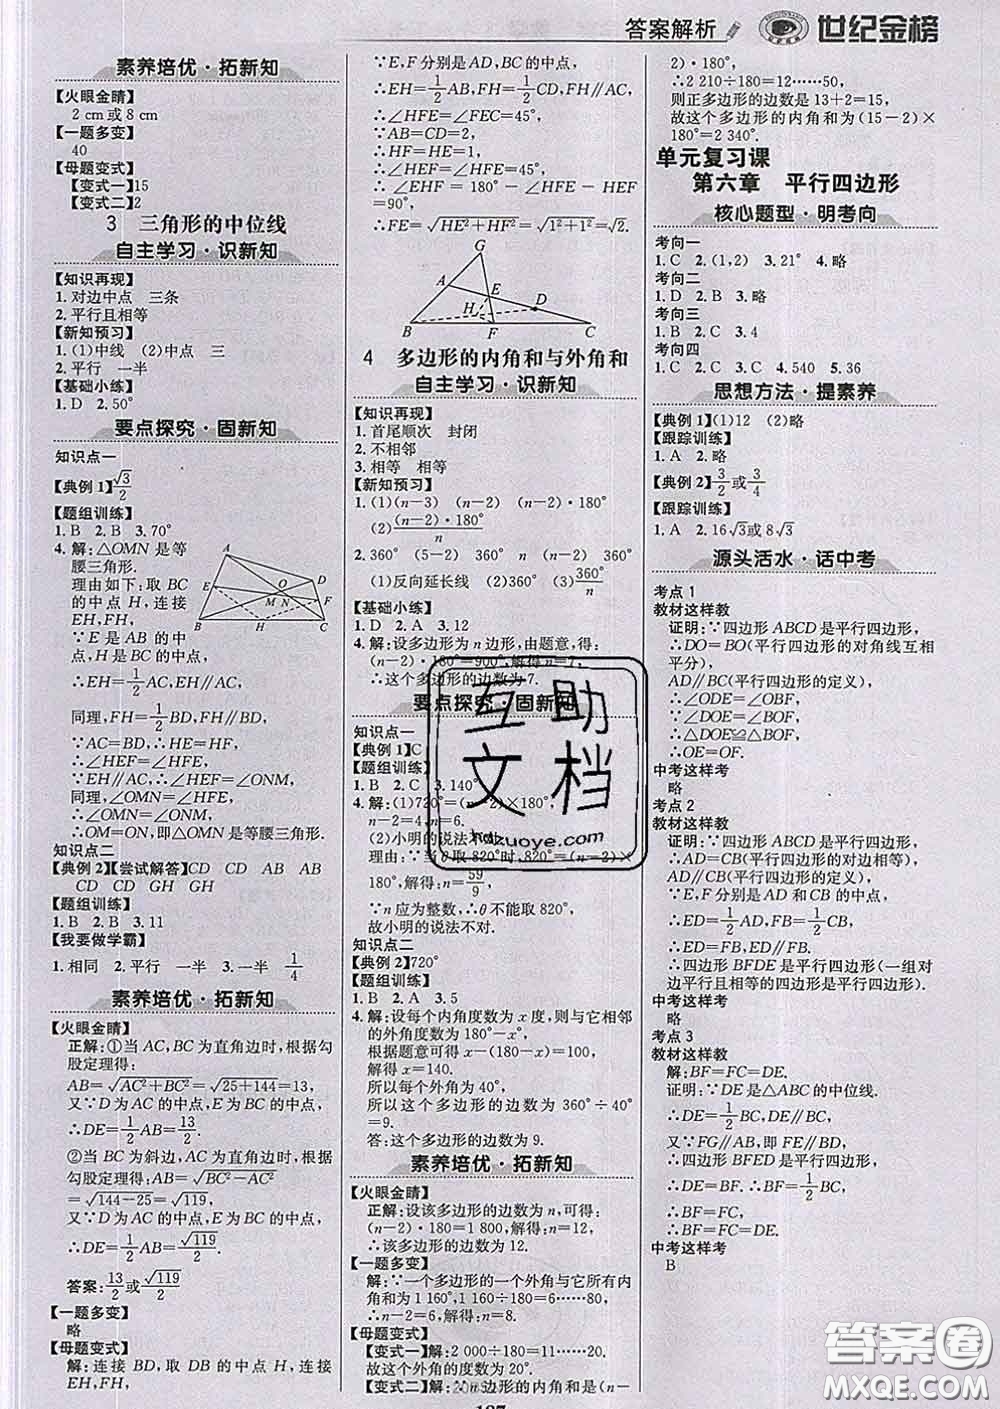 答案解析
世纪金榜
素养培优·拓新知
【火眼金睛】
2 cm或8 cm
【一题多变】
40
【母题变式】
【变式一】15
【变式二】2
3 三角形的中位线
自主学习·识新知
【知识再现】
1.对边中点 三条
2.平行且相等
【新知预习】
1.(1)中线 (2)中点 三
2.平行 一半
【基础小练】
1.D 2.50°
要点探究·固新知
知识点一
【典例1】√3/2
【题组训练】
1.B 2.B 3.70°
4.解:△OMN是等
腰三角形.
理由如下:取BC
的中点H,连接
EH,FH,
∵E是AB的中
点,
∴EH=1/2AC,EH∥AC,
同理,FH=1/2BD,FH∥BD,
∵AC=BD,∴HE=HF,
∴∠HEF=∠HFE,
∵EH∥AC,∴∠HEF=∠ONM,
同理,∠OMN=∠HFE,
∴∠OMN=∠ONM,
∴OM=ON,即△OMN是等腰三角形.
A
E
O
D
M
N
F
B
H
C
知识点二
【典例2】【尝试解答】CD CD AB AB
CD CD GH GH
【题组训练】
1.B 2.B 3.11
【我要做学霸】
1.相同 2.平行 一半 3.一半 1/4
素养培优·拓新知
【火眼金睛】
正解:①当AC,BC为直角边时,根据勾
股定理得:
AB=√AC²+BC²=√25+144=13,
又∵D为AC的中点,E为AB的中点,
∴DE=1/2AB=13/2.
②当BC为斜边,AC为直角边时,根据
勾股定理得:AB=√BC²-AC²
=√144-25=√119,
又∵D为AC的中点,E为AB的中点,
∴DE=1/2AB=√119/2.
答案:13/2或√119/2
【一题多变】
略
【母题变式】
解:连接BD,取DB的中点H,连接
EH,FH,
∵E,F分别是AD,BC的中点,
∴EH=1/2AB,FH=1/2CD,FH∥AC,
∴∠HFE=∠FEC=45°,
∵AB=CD=2,
∴HF=HE=1,
∴∠HEF=∠HFE=45°,
∴∠EHF=180°-∠HFE-∠HEF
=90°,
∴FE=√HE²+HF²=√1²+1²=√2.
G
A
E
H
D
B
F
C
4 多边形的内角和与外角和
自主学习·识新知
【知识再现】
1.首尾顺次 封闭
2.不相邻
3.相等 相等
【新知预习】
1.(1)(n-3) (n-2) (n-2)·180°
(2)(n-2)·180°/n
2.360° (5-2) 360° n (n-2) 360°
(1)反向延长线 (2)360° (3)360°/n
【基础小练】
1.D 2.A 3.12
4.解:设多边形为n边形,由题意,得:
(n-2)·180°=900°,解得n=7,
∴这个多边形的边数为7.
要点探究·固新知
知识点一
【典例1】C
【题组训练】
1.B 2.C 3.140°
4.解:(1)720°=(n-2)×180°,
n-2=4,n=6.
(2)小明的说法不对.
理由:∵当θ取820°时,820°=(n-2)×
180°,解得:n=59/9,
∵n应为整数,∴θ不能取820°,
故小明的说法不对.
知识点二
【典例2】720°
【题组训练】
1.B 2.A 3.5
4.解:设每个内角度数为x度,则与它相邻
的外角度数为180°-x°,
根据题意可得x-(180-x)=100,
解得x=140.
所以每个外角为40°,
所以这个多边形的边数为360°÷40°
=9.
答:这个多边形的边数为9.
素养培优·拓新知
【火眼金睛】
正解:设该多边形的边数为n,可得:
(n-2)·180=1 800,解得n=12,
∴该多边形的边数为12.
【一题多变】
解:∵一个多边形的一个外角与它所有内
角和为1 160°,1 160÷180=6……80,
∴n-2=6,解得n=8.
【母题变式】
【变式一】解:2 000÷180=11……20.
故这个外角的度数为20°.
【变式二】解:∵n边形的内角和是(n-
2)·180°,
∴2 210÷180=12……50,
则正多边形的边数是13+2=15,
故这个多边形的内角和为(15-2)×
180°=2 340°.
单元复习课
第六章 平行四边形
核心题型·明考向
考向一
1.C 2.(1,2) 3.21° 4.略
考向二
1.D 2.B 3.略
考向三
1.B 2.C 3.4
考向四
1.C 2.C 3.C 4.540 5.36
思想方法·提素养
【典例1】(1)12 (2)略
【跟踪训练】
1.A 2.略
【典例2】3/2或3/4
【跟踪训练】
1.A 2.16√3或8√3
源头活水·话中考
考点1
教材这样教
证明:∵四边形ABCD是平行四边形,
∴DO=BO(平行四边形的对角线互相
平分),
AD∥BC(平行四边形的定义),
∴∠ODE=∠OBF,
∵∠DOE=∠BOF,
∴△DOE≌△BOF,
∴OE=OF.
中考这样考
略
考点2
教材这样教
证明:∵四边形ABCD是平行四边形,
∴AD=CB(平行四边形的对边相等),
AD∥CB(平行四边形的定义),
∵E,F分别是AD和CB的中点,
∴ED=1/2AD,FB=1/2CB,
∴ED=FB,ED∥FB,
∴四边形BFDE是平行四边形(一组对
边平行且相等的四边形是平行四边形).
中考这样考
略
考点3
教材这样教
解:BF=FC=DE.
证明:∵DE是△ABC的中位线,
∴DE=1/2BC,DE∥BC,
又∵FG∥AB,即FE∥BD,
∴四边形BFED是平行四边形,
∴DE=BF,
∴BF=FC,
∴BF=FC=DE.
中考这样考
B
互助文档
hdzuoye.com
答案圈
MXQE.COM